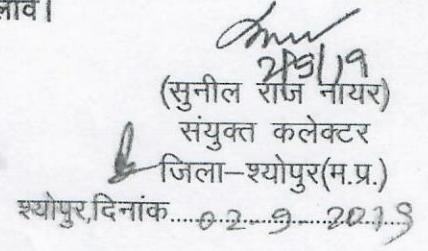 लावे।
2/9/19
(सुनील राज नायर)
संयुक्त कलेक्टर
जिला–श्योपुर(म.प्र.)
श्योपुर,दिनांक.....02-9-2019